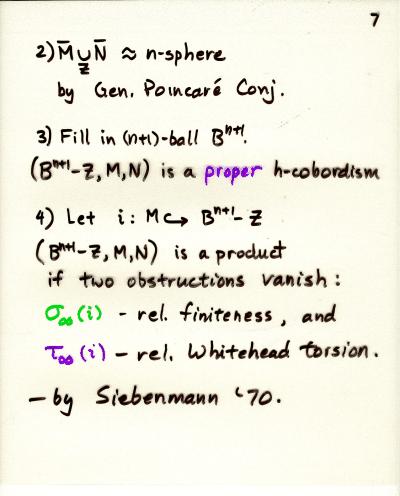 7
2) M̄ ∪ N̄ ≈ n-sphere
Z
by Gen. Poincaré Conj.
3) Fill in (n+1)-ball Bⁿ⁺¹.
(Bⁿ⁺¹-Z, M, N) is a proper h-cobordism
4) Let i: M ↪ Bⁿ⁺¹-Z
(Bⁿ⁺¹-Z, M, N) is a product
if two obstructions vanish:
σ∞(i) - rel. finiteness, and
τ∞(i) - rel. Whitehead torsion.
- by Siebenmann '70.